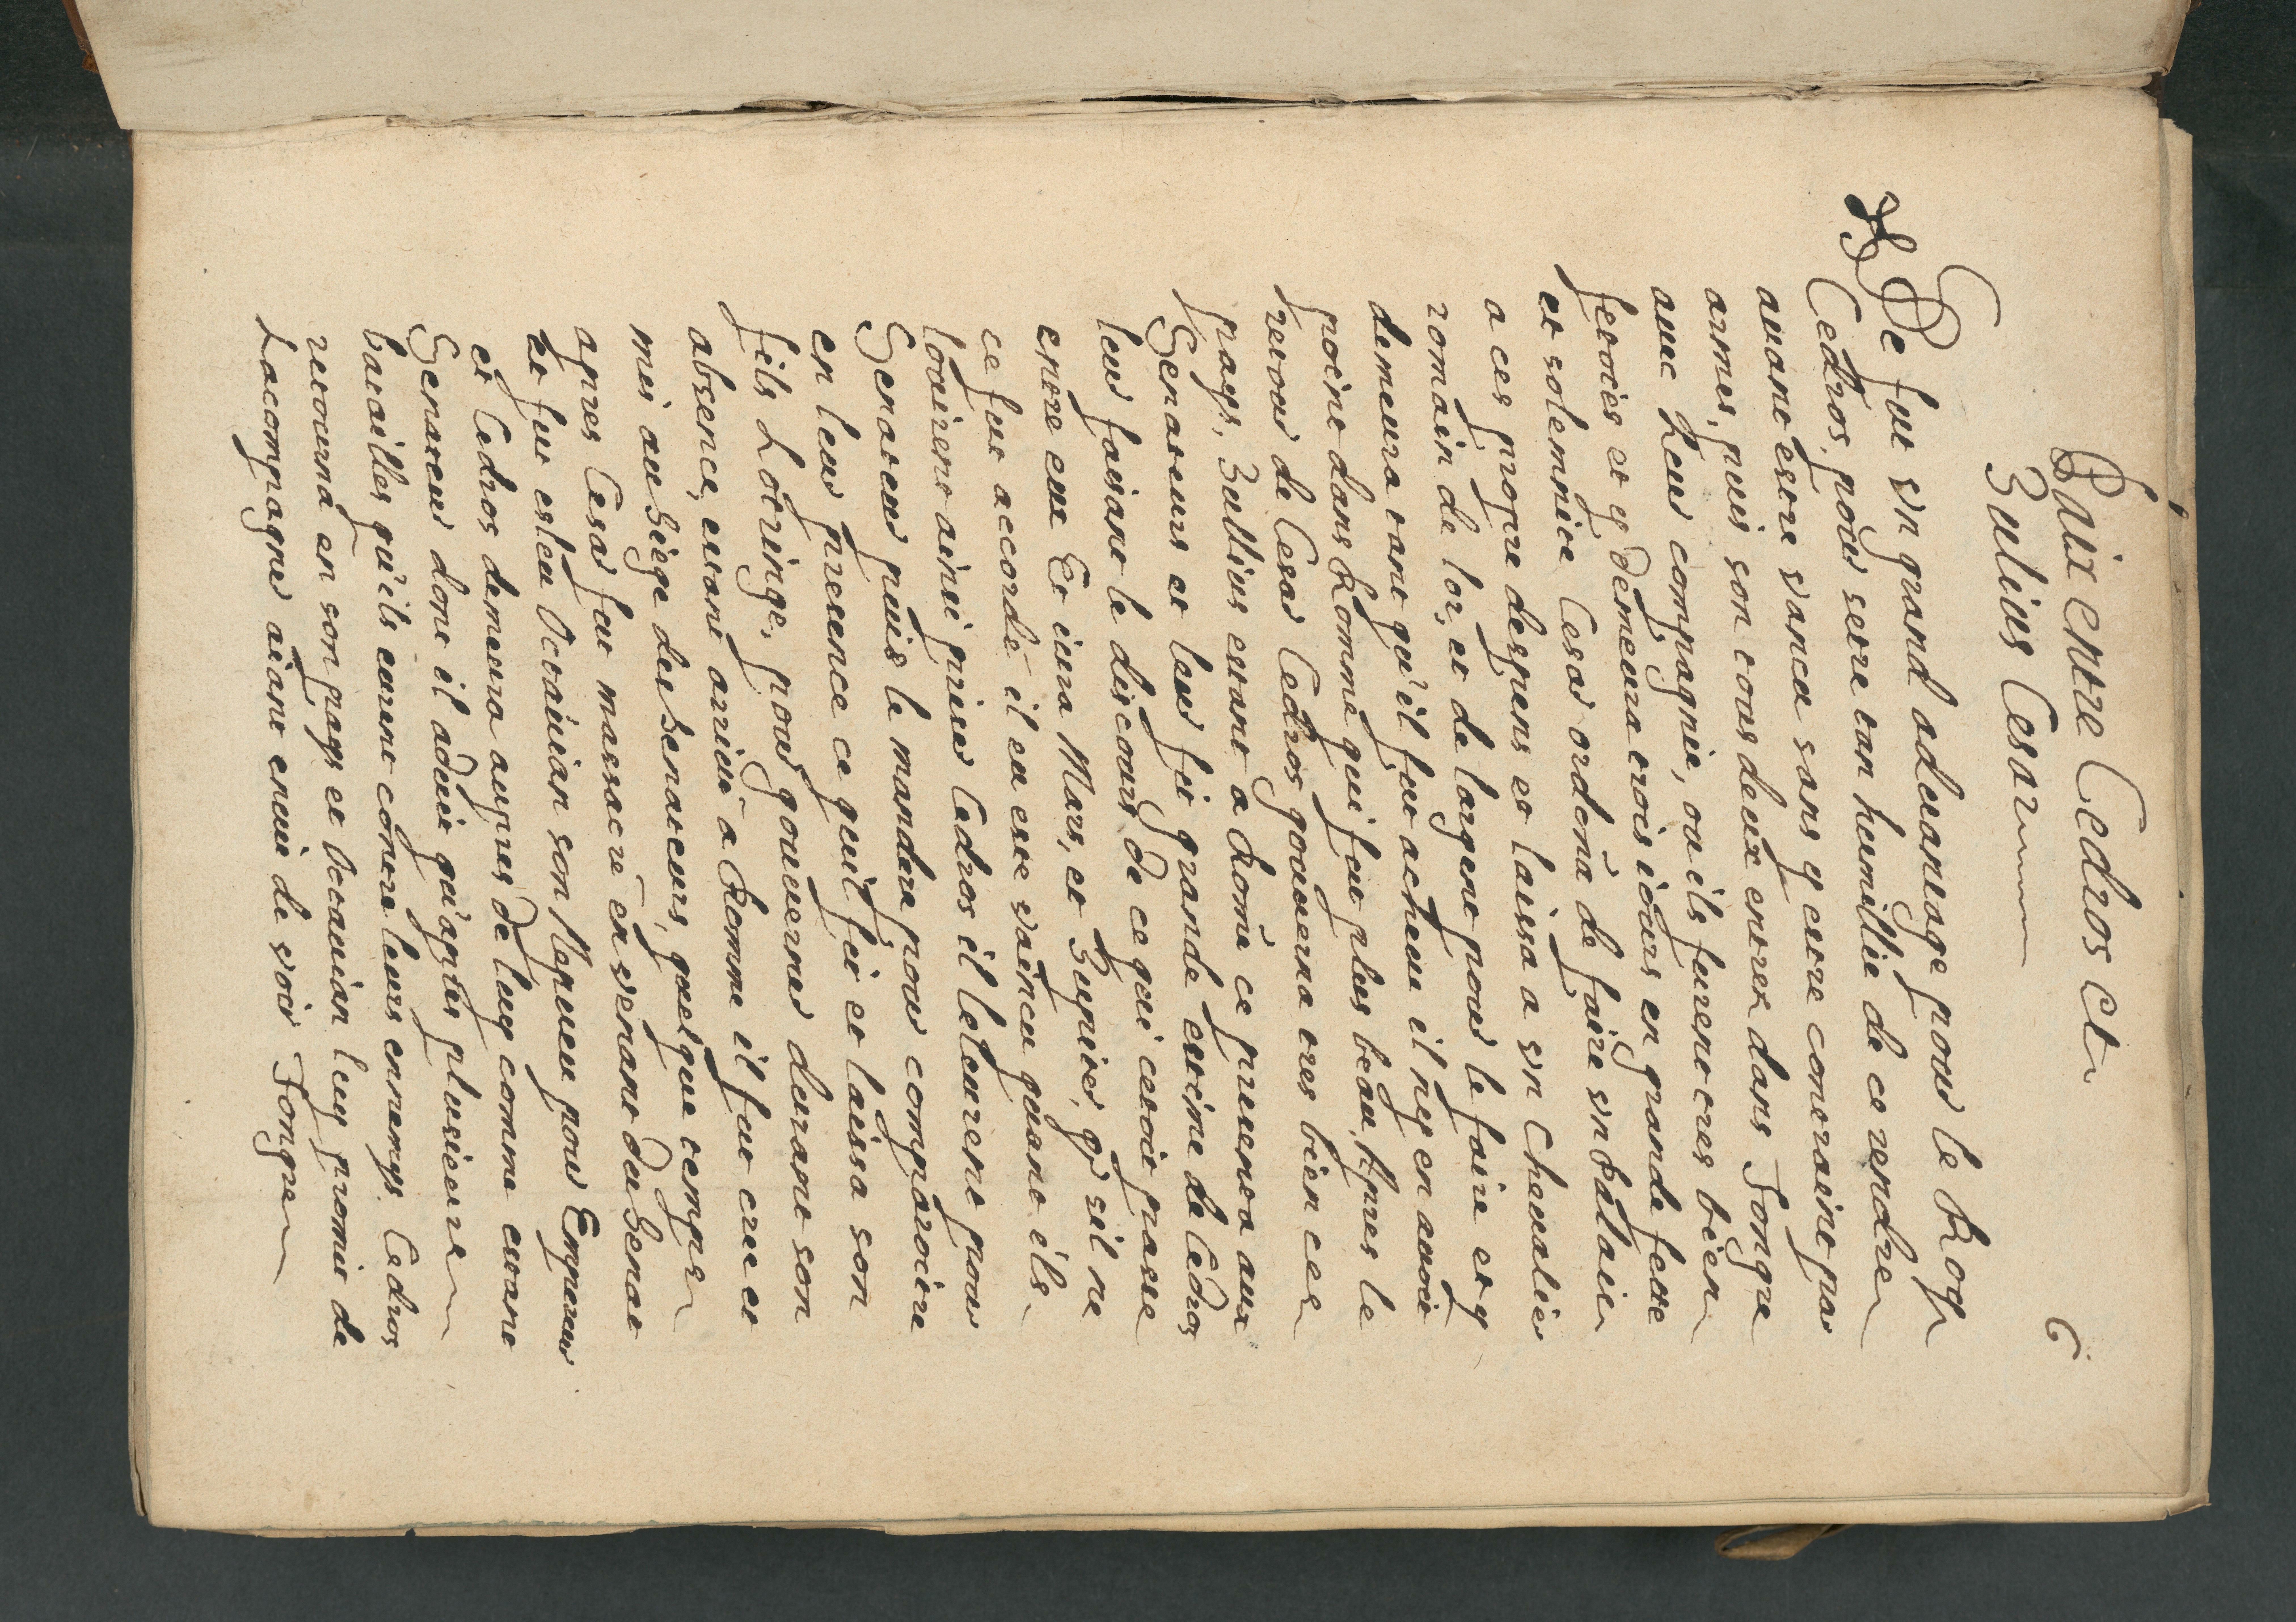 6
Paix entre Cedros et
Julius Cesar
Ce fut vn grand aduantage pour le Roy
Cedros, pour setre tan humillie de ce rendre
auant estre vancu sans y estre contraint par
armes, puis son tous deux entrer dans Tongre
auec Leur compagnie, ou ils furent tres bien
festoiés et y demeura trois iours en grande feste
et solemnite Cesar ordena de faire vn Palais
a ces propre despens et laissa a vn Cheualier
romain de lor, et de largent pour le faire et y
demeura tant qu'il fut acheue il ny en auoit
point dans Romme qui fut plus beau, Apres le
retour de Cesar Cedros gouuerna tres bien ces
pays, Jullius estant a Rome ce presenta aux
Senateurs et leur fit grande estime de Cedros
leur faisant le discours de ce qui cetoit passe
entre eux Et iura Mars, et Jupiter, qr sil ne
ce fut accordé il eu este vaincu quant ils
louirent ainsi priser Cedros il leleurent pour
Senateur puis le mandere pour comparoitre
en leur presence ce quil fit et laissa son
fils Lotringe, pour gouuerner durant son
absence, estant arriué a Romme il fut cree et
mis au Siege des Senateurs, quelque temps
apres Cesar fut massacré en venant du Senat
et fut esleu Octauian son Nepueu pour Empereur
et Cedros demeura aupres de luy comme estant
Senateur dont il aduit qu'aprés plusieure
batailles qu'ils eurent contre leurs ennemys Cedros
retourna en son pays et Octauian luy promit de
Lacompagner aiant enuie de voir Tongre